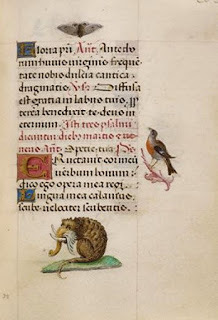 Gloria pri. Ant. Ante tho
rum huius virginis freque
tate nobis dulcia cantica
dragmatis. Ps. Diffusa
est gratia in labiis tuis.
terea benedixit te deus in
eternum. Isti tres psalmi
dicuntur diebus martis et ve
neris Ant. Specie tua. Ps.
Eructavit cor meu
verbum bonum:
dico ego opera mea regi
Lingua mea calamus
scribe velociter scribentis.